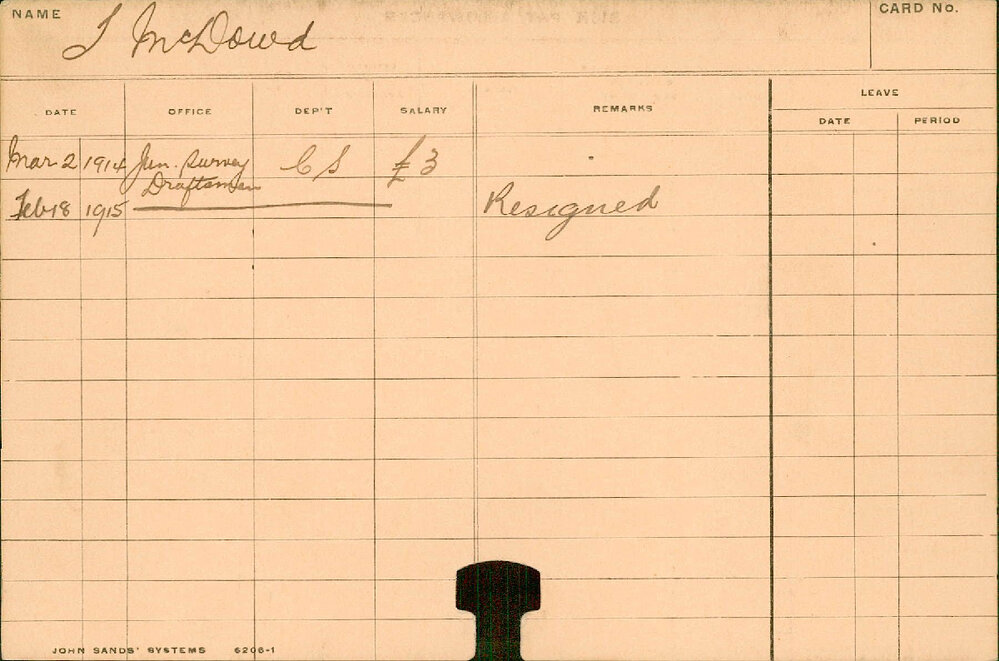 NAME
J McDowd
CARD No.
DATE OFFICE DEP'T SALARY REMARKS LEAVE
DATE PERIOD
Mar 2 1914 Jun. Survey C S £3
Draftsman
Feb 18 1915 Resigned
JOHN SANDS' SYSTEMS 6206-1